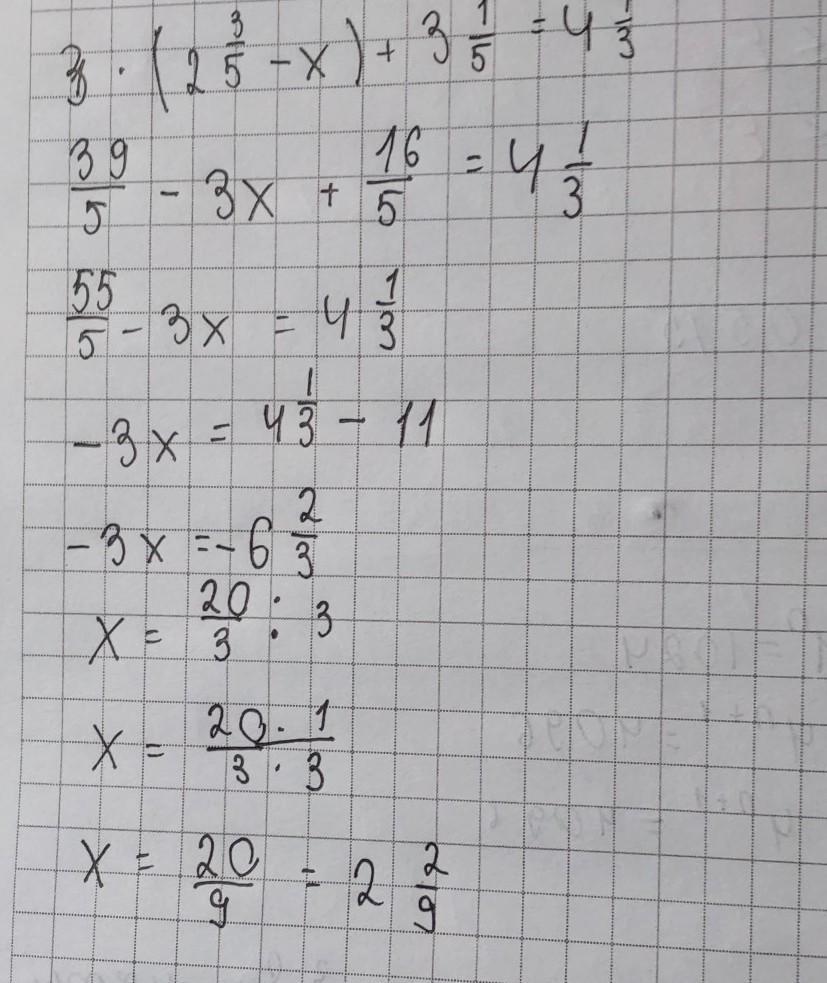 3 · (2 3/5 - x) + 3 1/5 = 4 1/3
39/5 - 3x + 16/5 = 4 1/3
55/5 - 3x = 4 1/3
-3x = 4 1/3 - 11
-3x = -6 2/3
x = 20/3 : 3
x = 20·1/3·3
x = 20/9 = 2 2/9